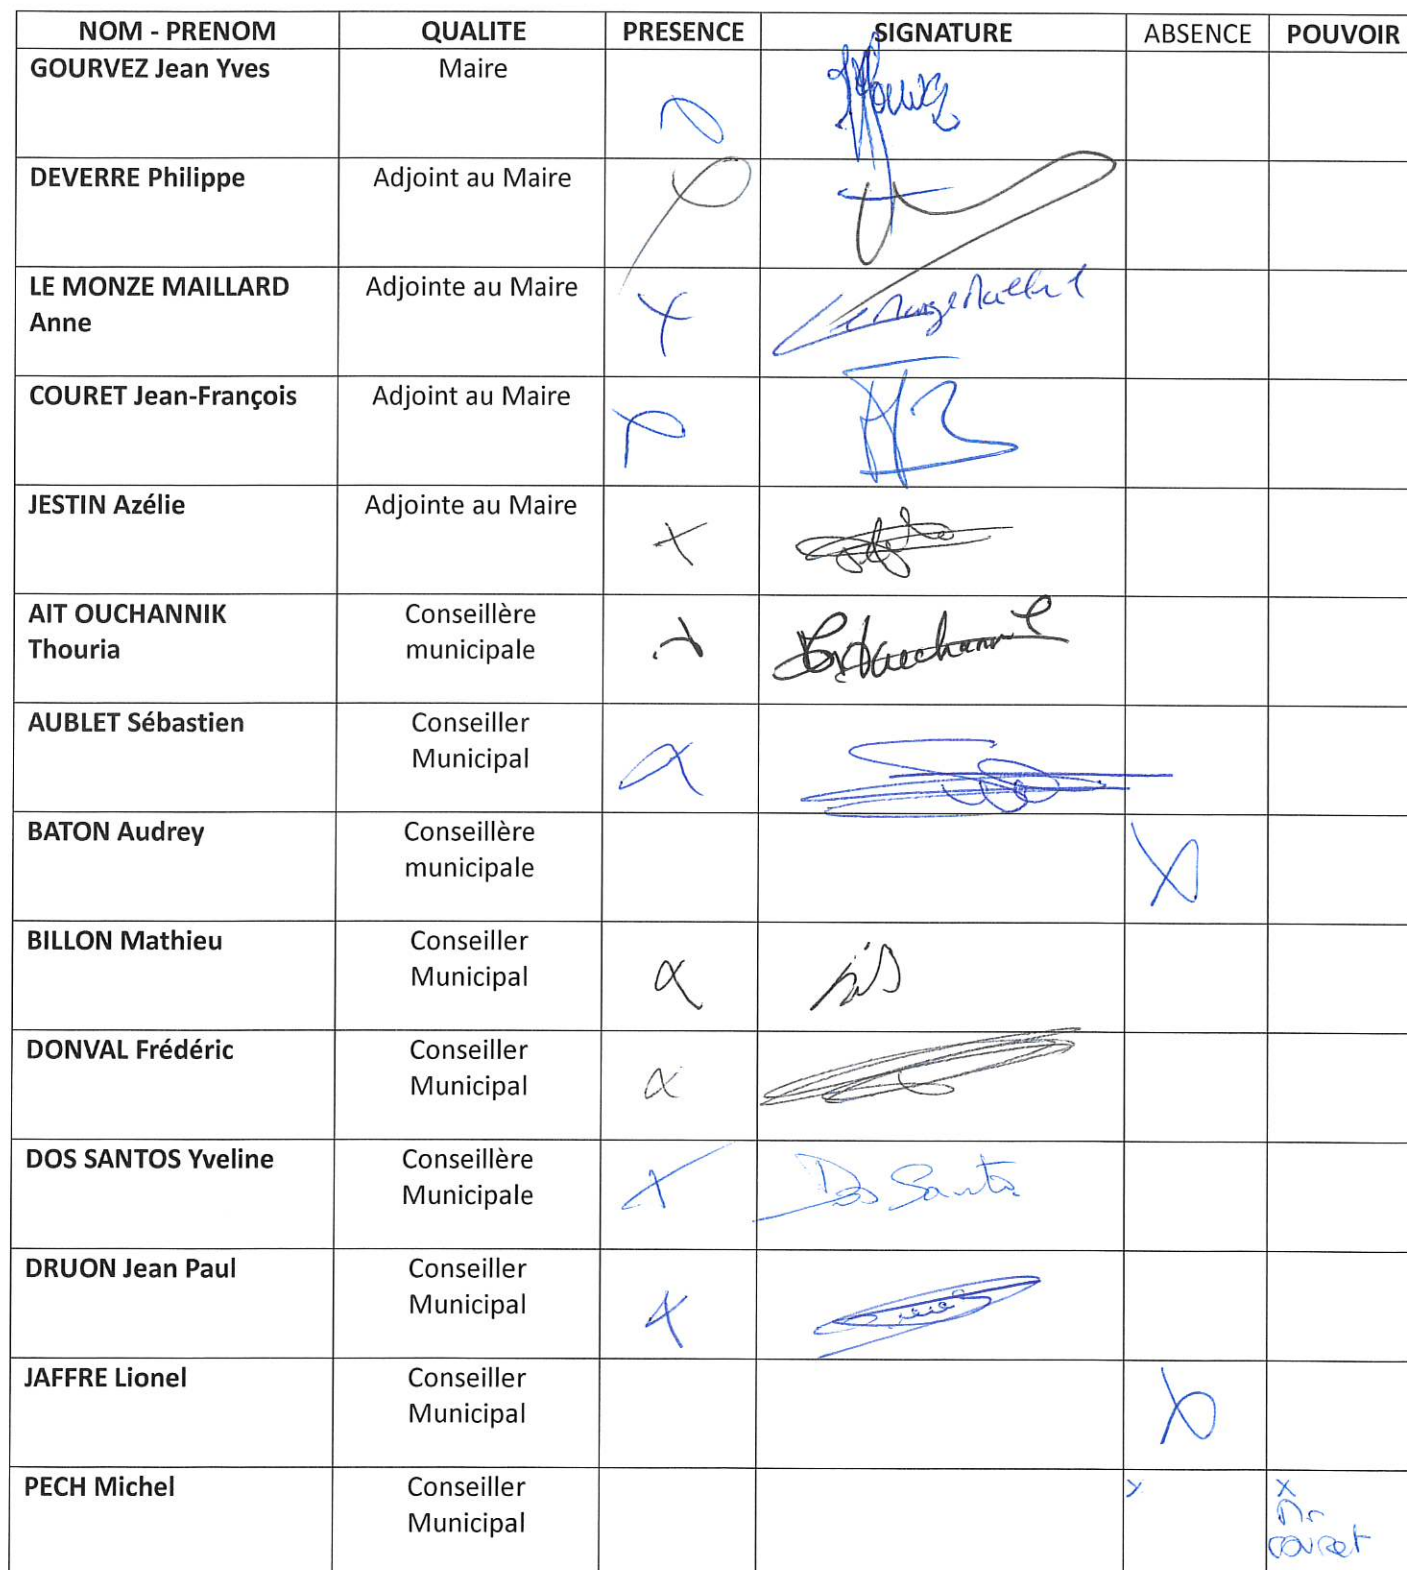 NOM - PRENOM QUALITE PRESENCE SIGNATURE ABSENCE POUVOIR
GOURVEZ Jean Yves Maire
DEVERRE Philippe Adjoint au Maire
LE MONZE MAILLARD Adjointe au Maire
Anne
COURET Jean-François Adjoint au Maire
JESTIN Azélie Adjointe au Maire
AIT OUCHANNIK Conseillère
Thouria municipale
AUBLET Sébastien Conseiller
Municipal
BATON Audrey Conseillère
municipale
BILLON Mathieu Conseiller
Municipal
DONVAL Frédéric Conseiller
Municipal
DOS SANTOS Yveline Conseillère
Municipale
Dos Santos
DRUON Jean Paul Conseiller
Municipal
JAFFRE Lionel Conseiller
Municipal
PECH Michel Conseiller x x
Municipal Mr
couret